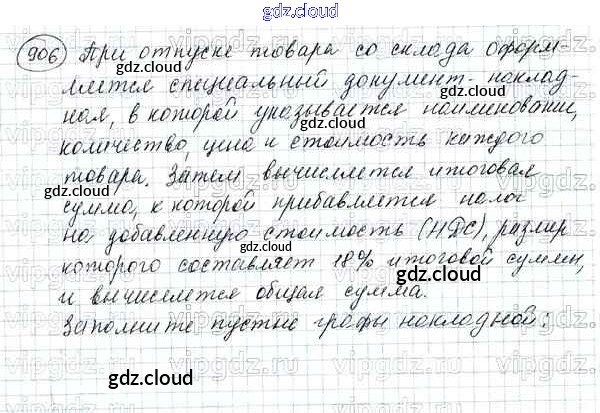 gdz.cloud
906 При отпуске товара со склада оформ-
ляется специальный документ - наклад-
ная, в которой указывается наименование,
количество, цена и стоимость каждого
товара. Затем вычисляется итоговая
сумма, к которой прибавляется налог
на добавленную стоимость (НДС), размер
которого составляет 18% итоговой суммы,
и вычисляется общая сумма.
Заполните пустые графы накладной:
gdz.cloud